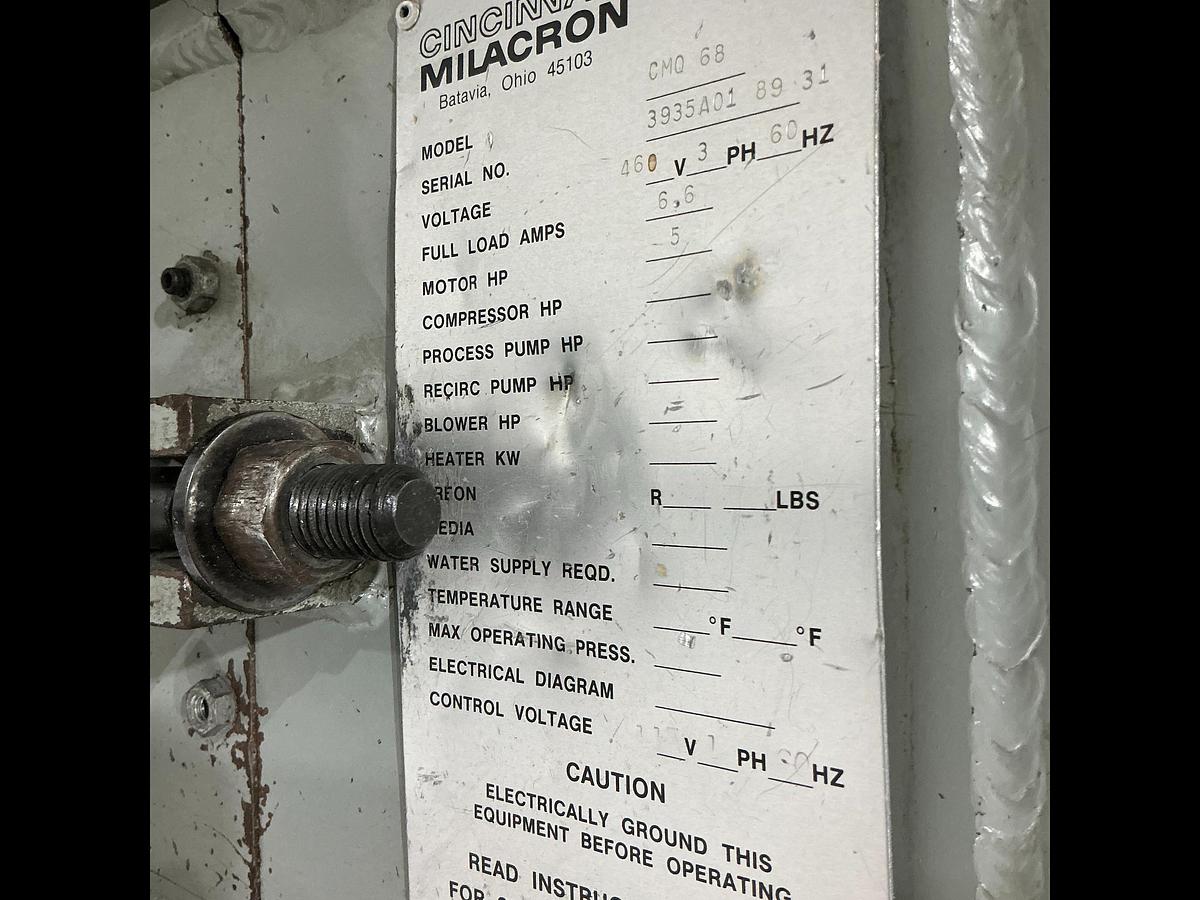 CINCINNA
MILACRON
Batavia, Ohio 45103
MODEL CMQ 68
SERIAL NO. 3935A01 89 31
VOLTAGE 460 V 3 PH 60 HZ
FULL LOAD AMPS 6.6
MOTOR HP 5
COMPRESSOR HP
PROCESS PUMP HP
RECIRC PUMP HP
BLOWER HP
HEATER KW
REON R LBS
EDIA
WATER SUPPLY REQD.
TEMPERATURE RANGE °F °F
MAX OPERATING PRESS.
ELECTRICAL DIAGRAM
CONTROL VOLTAGE V PH HZ
CAUTION
ELECTRICALLY GROUND THIS
EQUIPMENT BEFORE OPERATING
READ INSTRUC
FOR